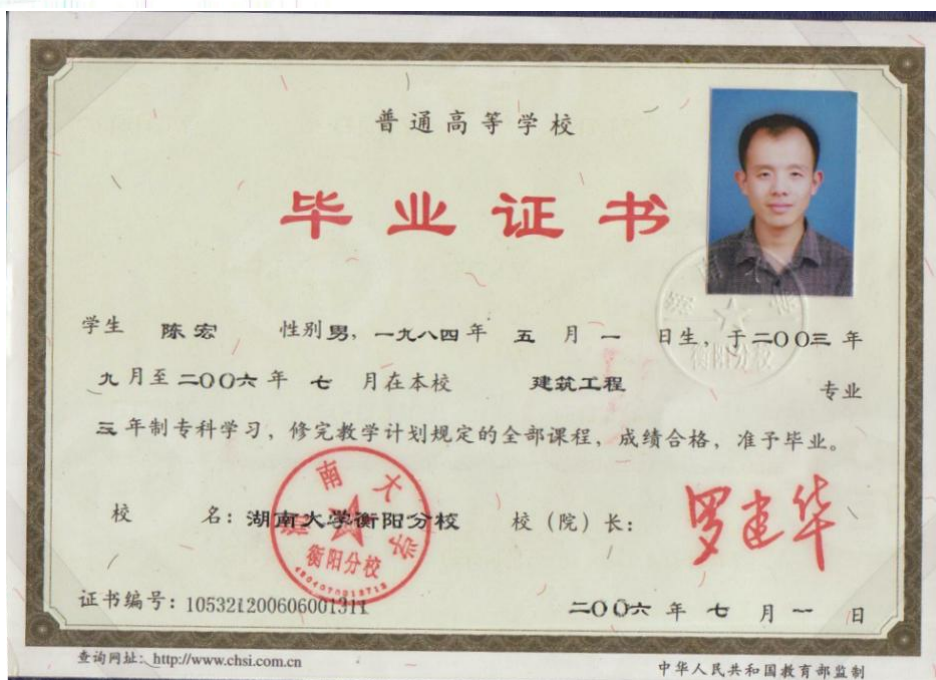 普通高等学校
毕业证书
学生 陈宏 性别男，一九八四年 五 月 一 日生，于二〇〇三年
九月至二〇〇六年 七 月在本校 建筑工程 专业
三年制专科学习，修完教学计划规定的全部课程，成绩合格，准予毕业。
湖南大学
衡阳分校
校 名：湖南大学衡阳分校 校（院）长：罗建华
湖南大学
衡阳分校
证书编号：105321200606001311 二〇〇六年 七 月 一 日
查询网址：http://www.chsi.com.cn
中华人民共和国教育部监制